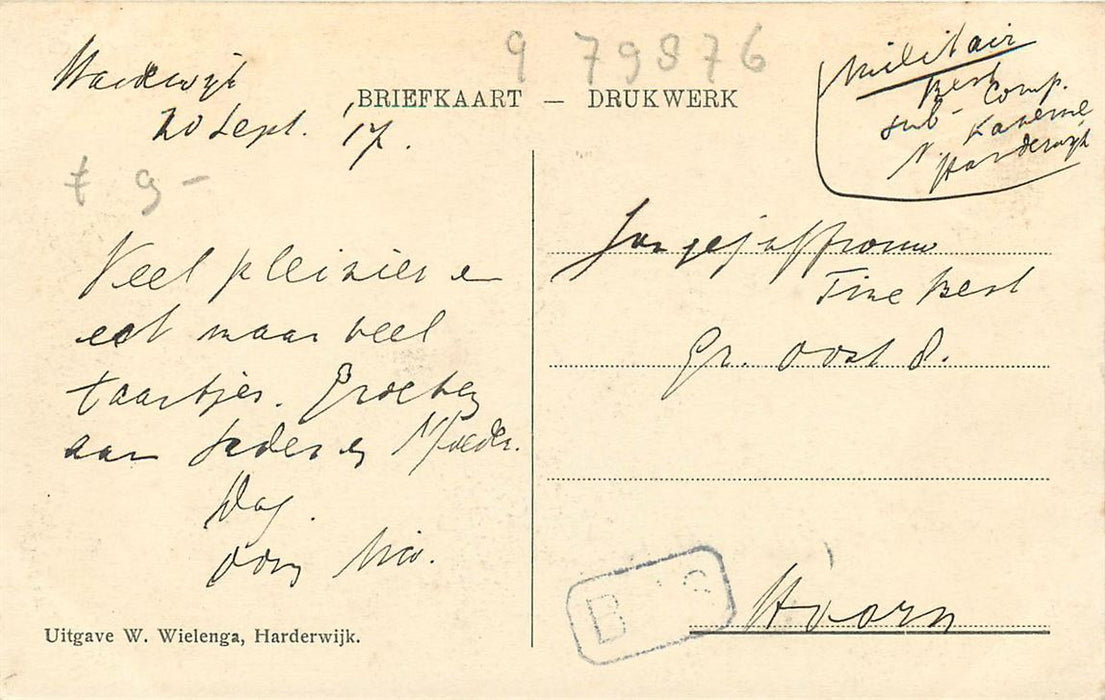 9 79876
Harderwijk
20 Sept. '17.
BRIEFKAART — DRUKWERK
Militair
Best
sub-Comp.
N. Kazerne
Harderwijk
t 9-
Veel pleizier en
eet maar veel
taartjes. Groeten
aan Vader en Moeder.
Dag.
oom Nico.
Jongejuffrouw
Tine Best
Gr. Oost 8.
Hoorn
B
Uitgave W. Wielenga, Harderwijk.